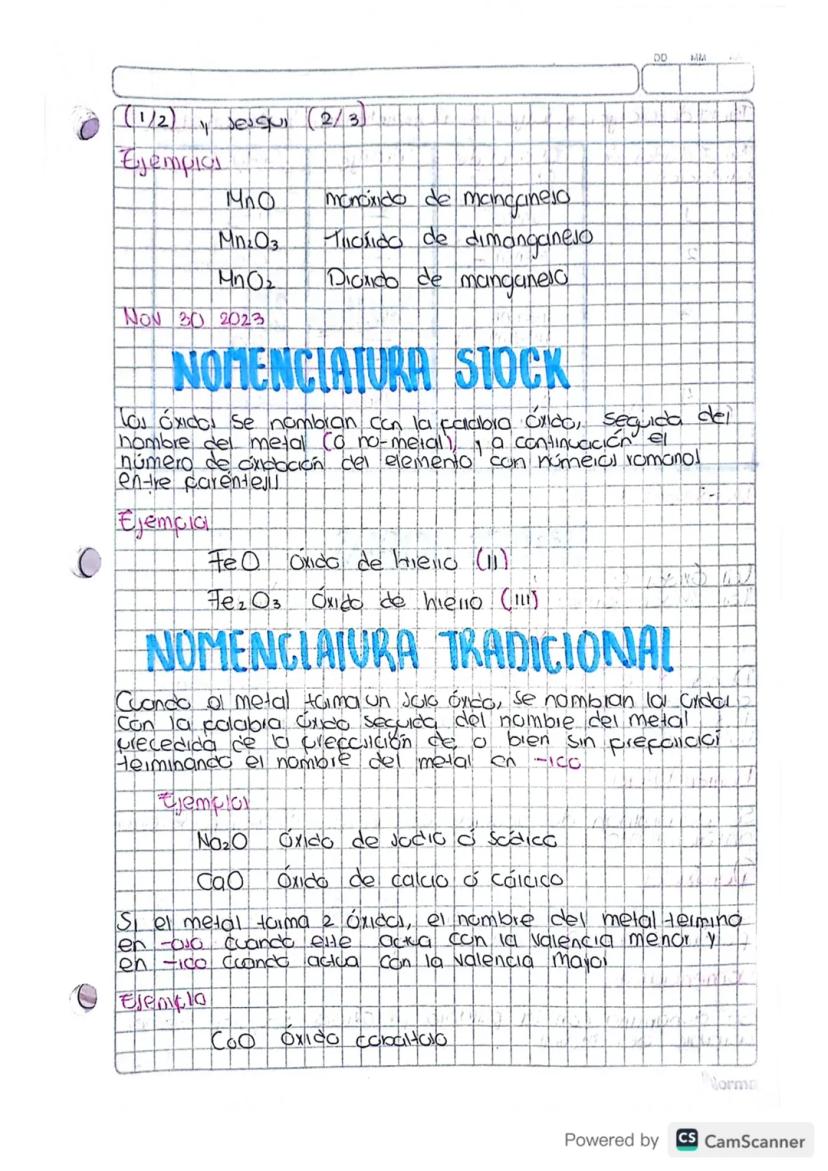 DD MM
(1/2) y sesqui (2/3)
Ejemplos
MnO monóxido de manganeso
Mn2O3 Trióxido de dimanganeso
MnO2 Dióxido de manganeso
Nov 30 2023
NOMENCLATURA STOCK
Los óxidos se nombran con la palabra óxido, seguida del
nombre del metal (o no-metal), y a continuación el
número de oxidación del elemento con números romanos
entre paréntesis
Ejemplos
FeO óxido de hierro (II)
Fe2O3 Óxido de hierro (III)
NOMENCLATURA TRADICIONAL
Cuando el metal forma un solo óxido, se nombran los óxidos
con la palabra óxido seguida del nombre del metal
precedida de la preposición de o bien sin preposici
terminando el nombre del metal en -ico
Ejemplos
Na2O óxido de sodio ó sódico
CaO Óxido de calcio ó cálcico
Si el metal forma 2 óxidos, el nombre del metal termina
en -oso cuando este actua con la valencia menor y
en -ico cuando actua con la valencia mayor
Ejemplo
CoO óxido cobaltoso
Norma
Powered by CS CamScanner